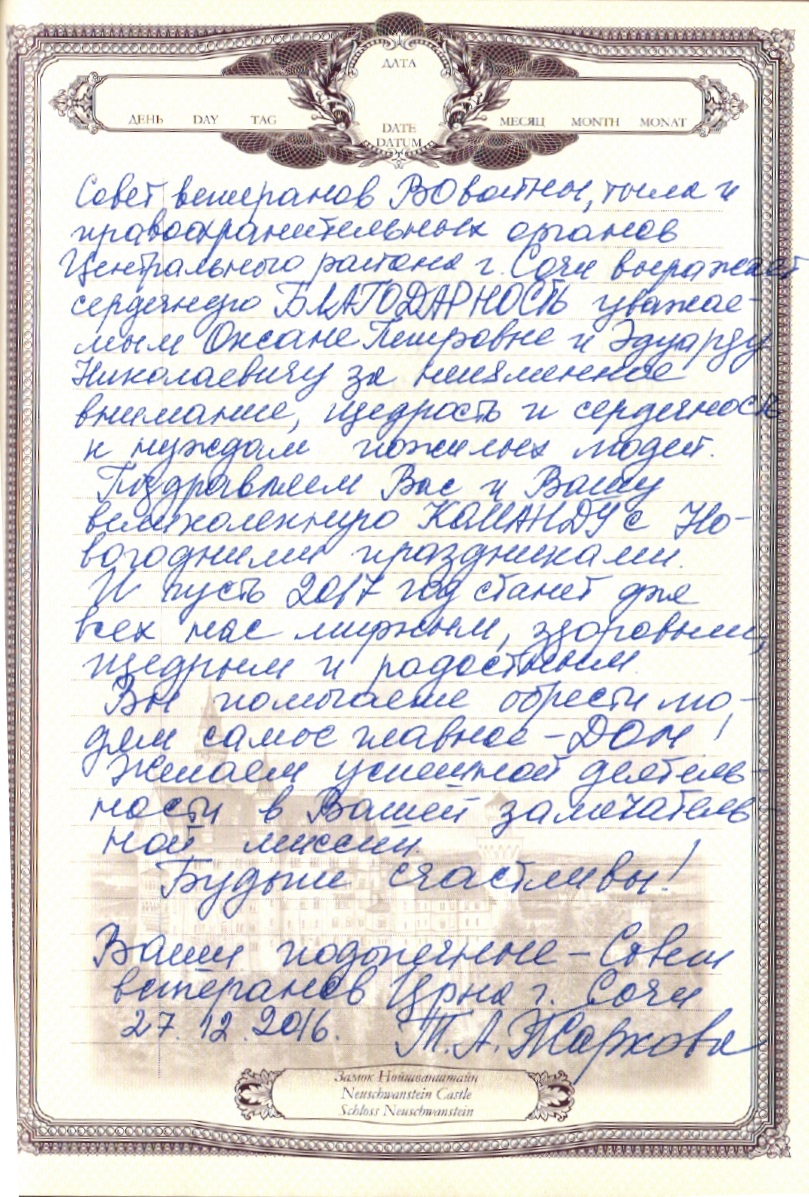 ДАТА
ДЕНЬ DAY TAG
МЕСЯЦ MONTH MONAT
DATE
DATUM
Совет ветеранов ВОвойны, тыла и
правоохранительных органов
Центрального района г. Сочи выражает
сердечную БЛАГОДАРНОСТЬ уважае-
мым Оксане Петровне и Эдуарду
Николаевичу за неизменное
внимание, щедрость и сердечность
к нуждам пожилых людей.
Поздравляем Вас и Вашу
великолепную КОМАНДУ с Но-
вогодними праздниками.
И пусть 2017 год станет для
всех нас мирным, здоровым,
щедрым и радостным.
Вы помогаете обрести лю-
дям самое главное – ДОМ!
Желаем успешной деятель-
ности в Вашей замечатель-
ной миссии.
Будьте счастливы!
Ваши подопечные – Совет
ветеранов Црна г. Сочи
27.12.2016. Т.А. Жаркова
Замок Нойшванштайн
Neuschwanstein Castle
Schloss Neuschwanstein